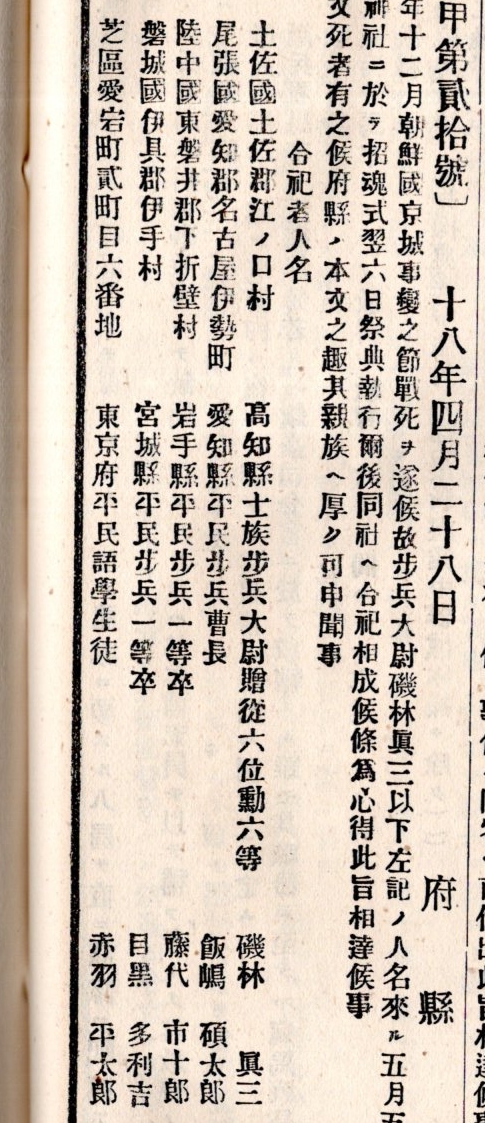 甲第貳拾號〕 十八年四月二十八日 府 縣
年十二月朝鮮國京城事變之節戰死ヲ遂候故步兵大尉磯林眞三以下左記ノ人名來ル五月五
神社ニ於テ招魂式翌六日祭典執行爾後同社ヘ合祀相成候條爲心得此旨相達候事
文死者有之候府縣ノ本文之趣其親族ヘ厚ク可申聞事
合祀者人名
土佐國土佐郡江ノ口村 高知縣士族步兵大尉贈從六位勳六等 磯林 眞三
尾張國愛知郡名古屋伊勢町 愛知縣平民步兵曹長 飯嶋 碩太郎
陸中國東磐井郡下折壁村 岩手縣平民步兵一等卒 藤代 市十郎
磐城國伊具郡伊手村 宮城縣平民步兵一等卒 目黑 多利吉
芝區愛宕町貳町目六番地 東京府平民語學生徒 赤羽 平太郎